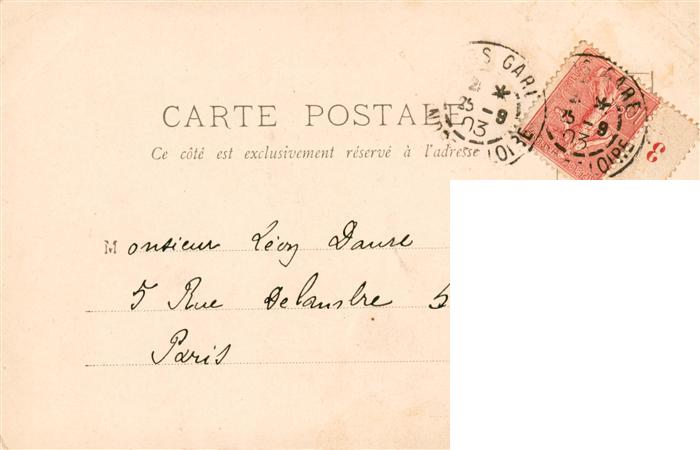 S GARE
25 -9
03
OIRE
S GARE
25 -9
03
OIRE
3
CARTE POSTALE
Ce côté est exclusivement réservé à l'adresse
Monsieur Léon
5 Rue
Paris